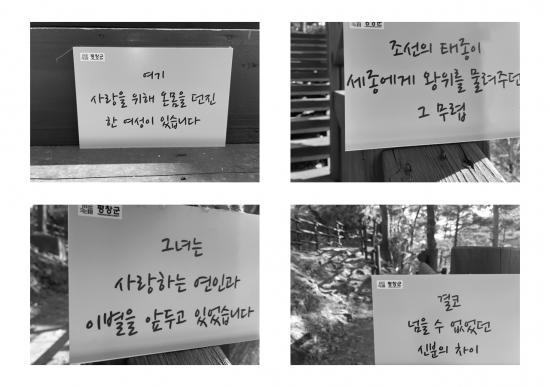 평창군
여기
사랑을 위해 온몸을 던진
한 여성이 있습니다
평창군
조선의 태종이
세종에게 왕위를 물려주던
그 무렵
평창군
그녀는
사랑하는 연인과
이별을 앞두고 있었습니다
평창군
결코
넘을 수 없었던
신분의 차이